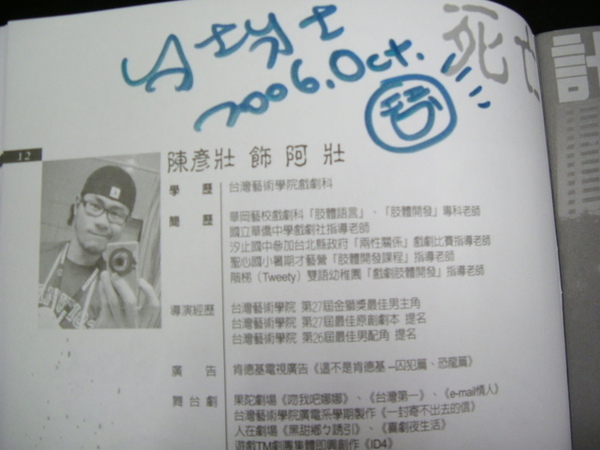 2006.Oct.
死亡
計
12
陳彥壯 飾 阿壯
學 歷 台灣藝術學院戲劇科
簡 歷 華岡藝校戲劇科「肢體語言」、「肢體開發」專科老師
國立華僑中學戲劇社指導老師
汐止國中參加台北縣政府「兩性關係」戲劇比賽指導老師
聖心國小暑期才藝營「肢體開發課程」指導老師
階梯（Tweety）雙語幼稚園「戲劇肢體開發」指導老師
導演經歷 台灣藝術學院 第27屆金獅獎最佳男主角
台灣藝術學院 第27屆最佳原創劇本 提名
台灣藝術學院 第26屆最佳男配角 提名
廣 告 肯德基電視廣告《這不是肯德基 –囚犯篇、恐龍篇》
舞台劇 果陀劇場《吻我吧娜娜》、《台灣第一》、《e-mail情人》
台灣藝術學院廣電系學期製作《一封寄不出去的信》
人在劇場《黑甜鄉ㄅ誘引》、《喜劇夜生活》
遊戲TM劇團集體即興創作《ID4》